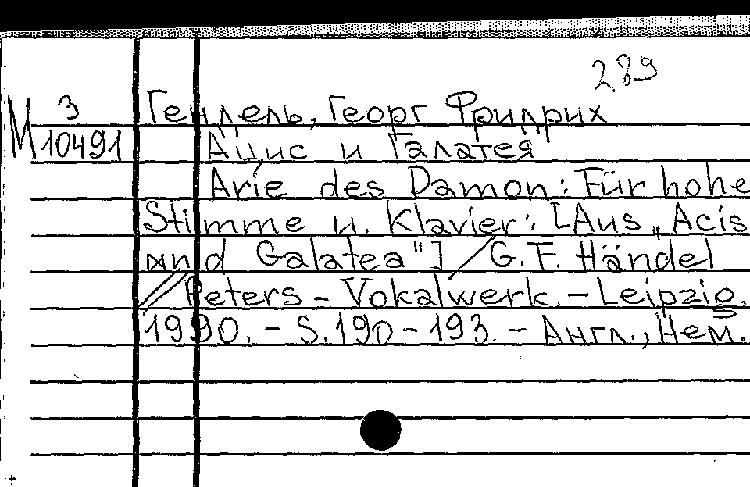 289
М 3
10491
Гендель, Георг Фридрих
Ацис и Галатея
Arie des Damon: Für hohe
Stimme u. Klavier: [Aus „Acis
und Galatea"] / G.F. Händel
// Peters - Vokalwerk. - Leipzig.
1990. - S.190-193. - Англ., Нем.